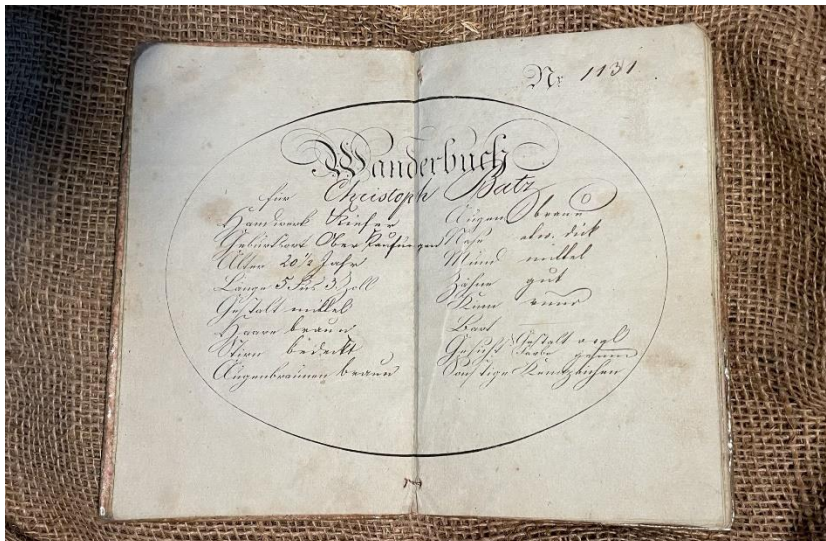 Nr 1131
Wanderbuch
für Christoph Batz
Handwerk Kiefer
Geburtsort Ober Kaufungen
Alter 20 1/2 Jahr
Länge 5 Fus 3 Zoll
Gestalt mittel
Haare braun
Stirn bedeckt
Augenbraunen braun
Augen braun
Nase etw. dick
Mund mittel
Zähne gut
Kinn rund
Bart
Gesicht Gestalt
Farbe gesund
Sonstige Kennzeichen